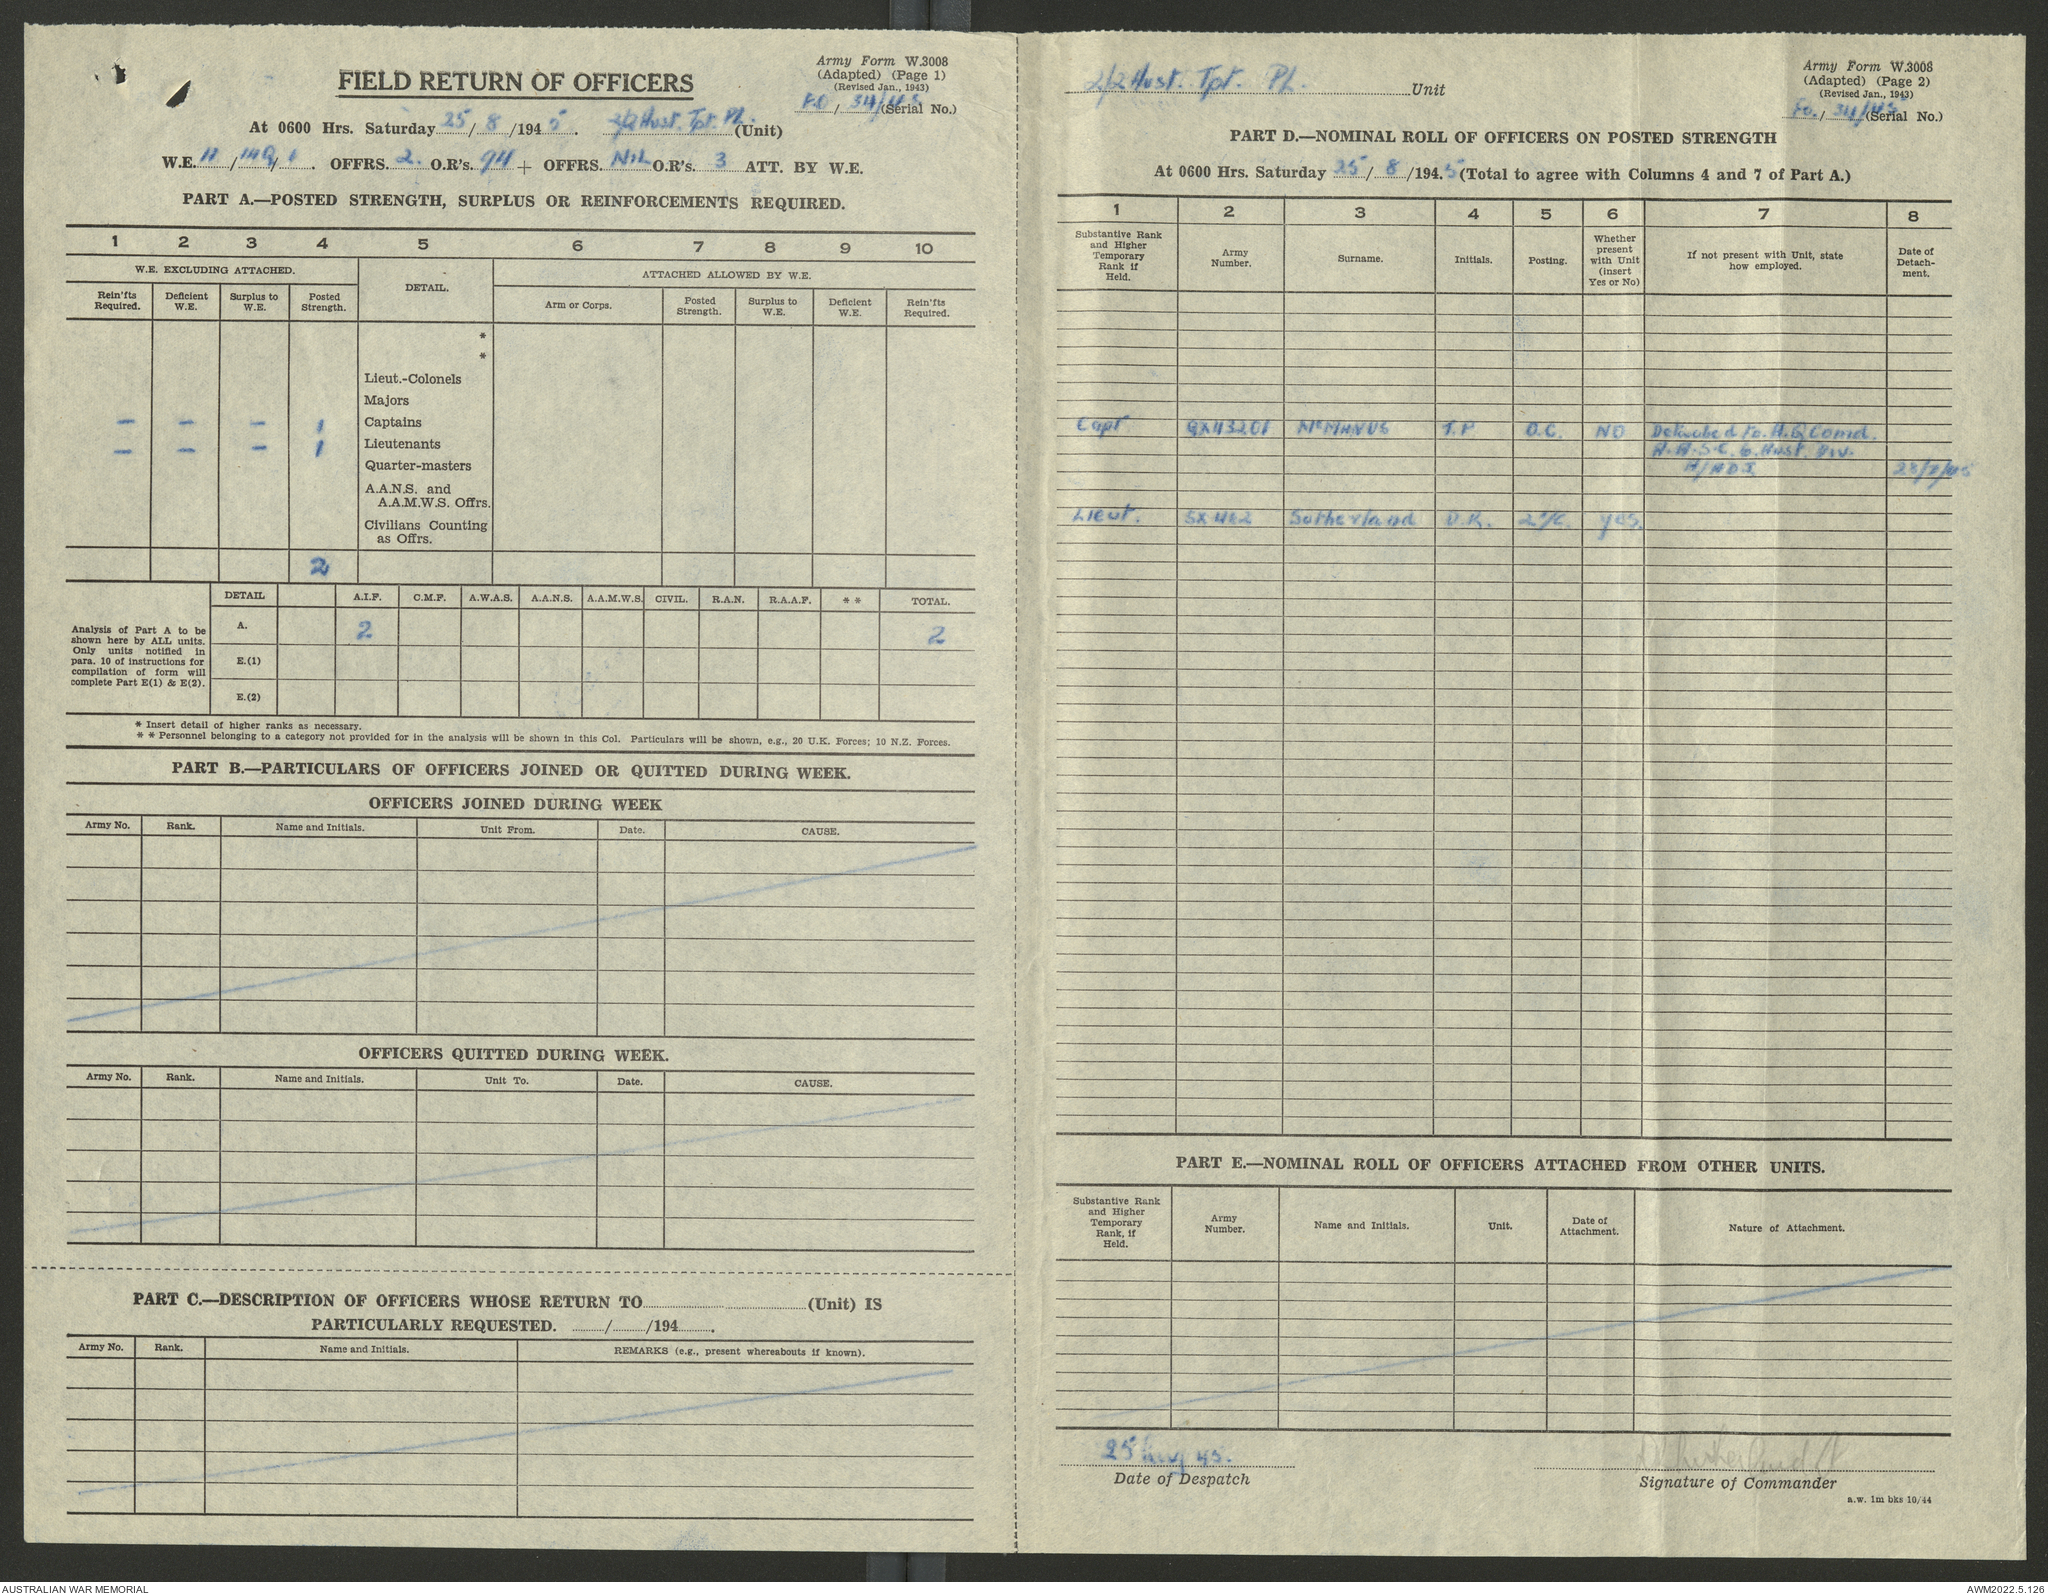 Army Form W.3008
(Adapted) (Page 1)
(Revised Jan., 1943)
FIELD RETURN OF OFFICERS
F.O / 34/45 (Serial No.)
At 0600 Hrs. Saturday 25/8/1945. 2/2 Aust. Tpt. Pl. (Unit)
W.E. 11/149/1. OFFRS. 2. O.R's. 94 + OFFRS. Nil O.R's. 3 ATT. BY W.E.
PART A.—POSTED STRENGTH, SURPLUS OR REINFORCEMENTS REQUIRED.
1 2 3 4 5 6 7 8 9 10
W.E. EXCLUDING ATTACHED. DETAIL. ATTACHED ALLOWED BY W.E.
Rein'fts Required. Deficient W.E. Surplus to W.E. Posted Strength. Arm or Corps. Posted Strength. Surplus to W.E. Deficient W.E. Rein'fts Required.
*
*
Lieut.-Colonels
Majors
– – – 1 Captains
– – – 1 Lieutenants
Quarter-masters
A.A.N.S. and
A.A.M.W.S. Offrs.
Civilians Counting
as Offrs.
2
Analysis of Part A to be
shown here by ALL units.
Only units notified in
para. 10 of instructions for
compilation of form will
complete Part E(1) & E(2).
DETAIL A.I.F. C.M.F. A.W.A.S. A.A.N.S. A.A.M.W.S. CIVIL. R.A.N. R.A.A.F. * * TOTAL.
A. 2 2
E.(1)
E.(2)
* Insert detail of higher ranks as necessary.
* * Personnel belonging to a category not provided for in the analysis will be shown in this Col. Particulars will be shown, e.g., 20 U.K. Forces; 10 N.Z. Forces.
PART B.—PARTICULARS OF OFFICERS JOINED OR QUITTED DURING WEEK.
OFFICERS JOINED DURING WEEK
Army No. Rank. Name and Initials. Unit From. Date. CAUSE.
OFFICERS QUITTED DURING WEEK.
Army No. Rank. Name and Initials. Unit To. Date. CAUSE.
PART C.—DESCRIPTION OF OFFICERS WHOSE RETURN TO (Unit) IS
PARTICULARLY REQUESTED. / /194 .
Army No. Rank. Name and Initials. REMARKS (e.g., present whereabouts if known).
2/2 Aust. Tpt. Pl. Unit
Army Form W.3008
(Adapted) (Page 2)
(Revised Jan., 1943)
Fo. / 34/45 (Serial No.)
PART D.—NOMINAL ROLL OF OFFICERS ON POSTED STRENGTH
At 0600 Hrs. Saturday 25/8/1945 (Total to agree with Columns 4 and 7 of Part A.)
1 2 3 4 5 6 7 8
Substantive Rank and Higher Temporary Rank if Held. Army Number. Surname. Initials. Posting. Whether present with Unit (insert Yes or No) If not present with Unit, state how employed. Date of Detachment.
Capt QX43201 McMANUS T.P O.C. NO Detached to H.Q Comd.
A.A.S.C. 6. Aust. Div.
A/ADJ 28/7/45
Lieut. SX462 Sutherland D.K. 2i/c. yes.
PART E.—NOMINAL ROLL OF OFFICERS ATTACHED FROM OTHER UNITS.
Substantive Rank and Higher Temporary Rank, if Held. Army Number. Name and Initials. Unit. Date of Attachment. Nature of Attachment.
25 Aug 45.
Date of Despatch
Signature of Commander
a.w. 1m bks 10/44
AUSTRALIAN WAR MEMORIAL
AWM2022.5.126